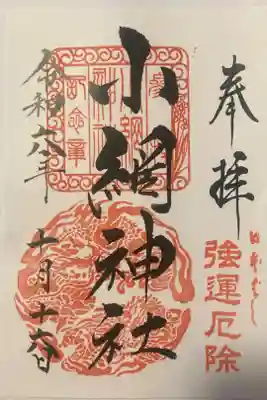 奉拝
日本ばし
強運厄除
小網神社
令和六年
十月十六日